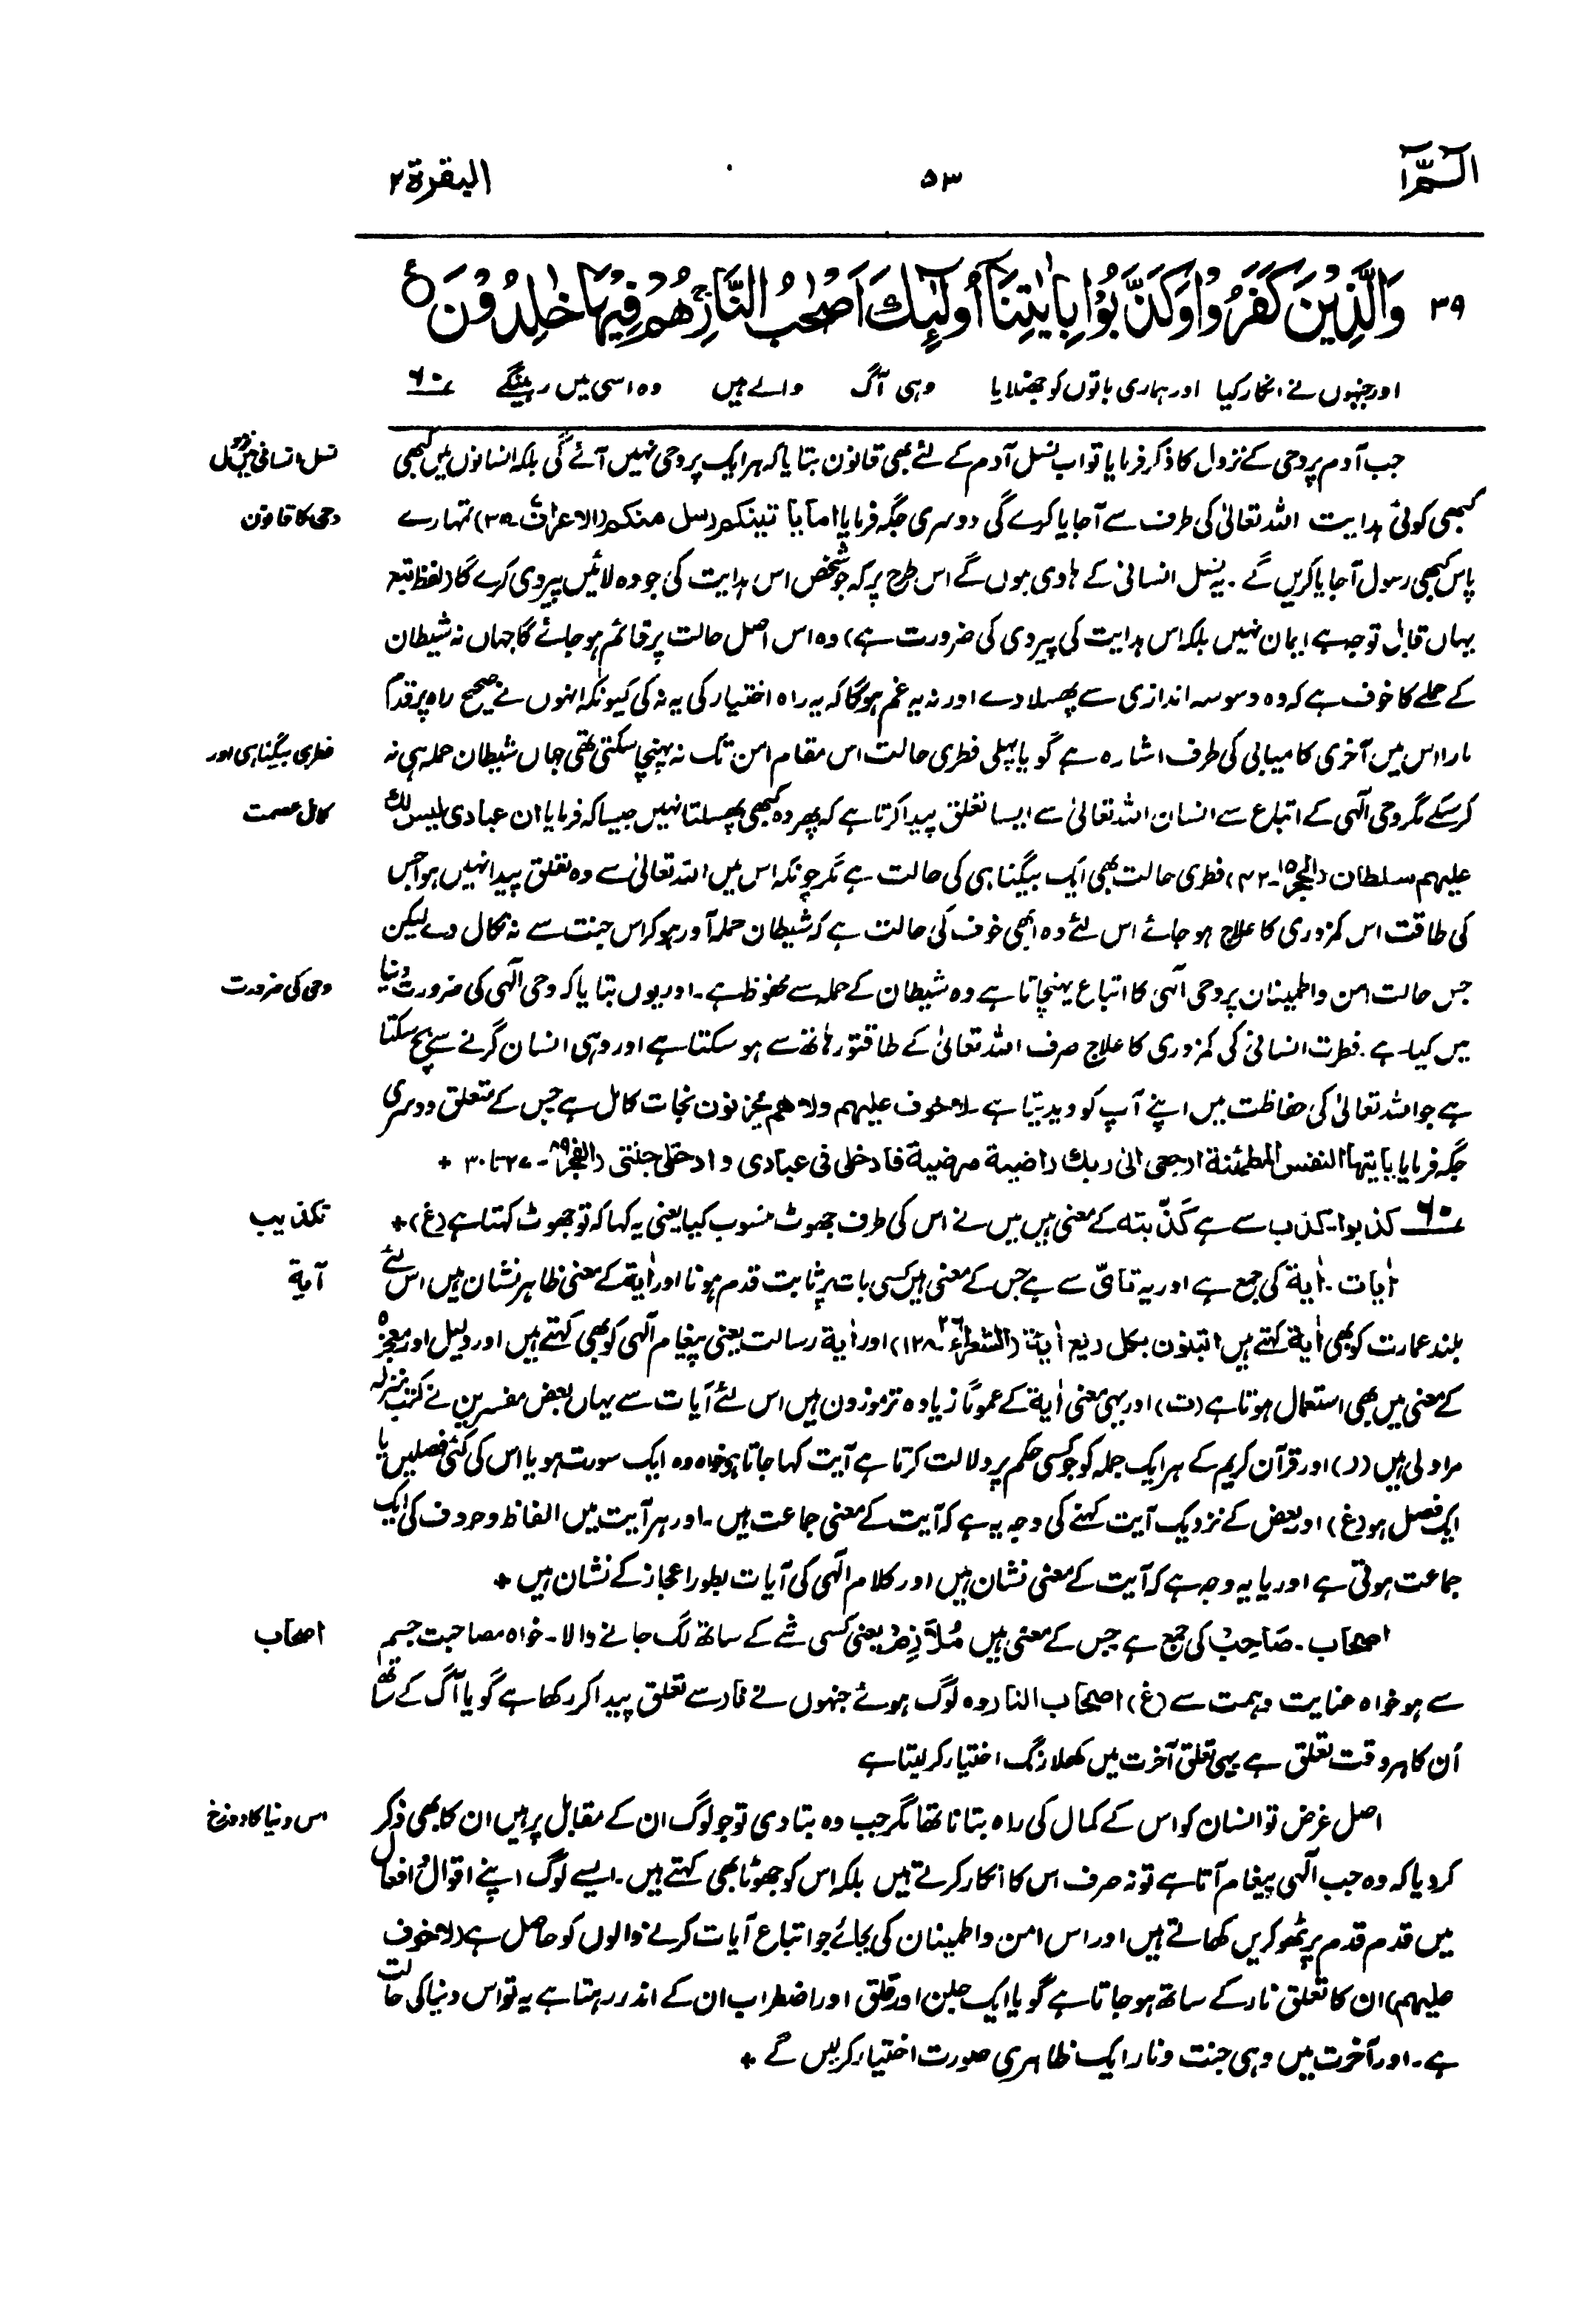 الٓمّٓ ٥٣ البقرة ٢
٣٩ وَالَّذِيْنَ كَفَرُوْا وَكَذَّبُوْا بِاٰيٰتِنَآ اُولٰٓئِكَ اَصْحٰبُ النَّارِ ۚ هُمْ فِيْهَا خٰلِدُوْنَ ع
اور جنہوں نے انکار کیا اور ہماری باتوں کو جھٹلایا وہی آگ والے ہیں وہ اسی میں رہینگے ٦٠
جب آدم پر وحی کے نزول کا ذکر فرمایا تو اب نسل آدم کے لئے بھی قانون بتایا کہ ہر ایک پر وحی نہیں آئے گی بلکہ انسانوں میں کبھی
نسل انسانی میں نزول
کبھی کوئی ہدایت اللہ تعالیٰ کی طرف سے آجایا کرے گی دوسری جگہ فرمایا اما یاتینکم رسل منکم (الاعراف ۷۔۳۵) تمہارے
وحی کا قانون
پاس کبھی رسول آجایا کریں گے۔ یہ نسل انسانی کے ہادی ہوں گے اس طرح پر کہ جو شخص اس ہدایت کی جو وہ لائیں پیروی کرے گا (لفظ تبع
یہاں قابل توجہ ہے ایمان نہیں بلکہ اس ہدایت کی پیروی کی ضرورت ہے) وہ اس اصل حالت پر قائم ہو جائے گا جہاں نہ شیطان
کے حملے کا خوف ہے کہ وہ وسوسہ اندازی سے پھسلا دے اور نہ یہ غم ہوگا کہ یہ راہ اختیار کی یہ نہ کی کیونکہ انہوں نے صحیح راہ پر قدم
مارا اس میں آخری کامیابی کی طرف اشارہ ہے گویا پہلی فطری حالت اس مقام امن تک نہ پہنچا سکتی تھی جہاں شیطان حملہ ہی نہ
فطری بیگناہی اور
کر سکے مگر وحی الٰہی کے اتباع سے انسان اللہ تعالیٰ سے ایسا تعلق پیدا کرتا ہے کہ پھر وہ کبھی پھسلتا نہیں جیسا کہ فرمایا ان عبادی لیس لک
کامل عصمت
علیہم سلطان (الحجر ۱۵۔۴۲) فطری حالت بھی ایک بیگناہی کی حالت ہے مگر چونکہ اس میں اللہ تعالیٰ سے وہ تعلق پیدا نہیں ہوا جس
کی طاقت اس کمزوری کا علاج ہو جائے اس لئے وہ ابھی خوف کی حالت ہے کہ شیطان حملہ آور ہو کر اس جنت سے نہ نکال دے لیکن
جس حالت امن و اطمینان پر وحی الٰہی کا اتباع پہنچاتا ہے وہ شیطان کے حملہ سے محفوظ ہے۔ اور یوں بتایا کہ وحی الٰہی کی ضرورت دنیا
وحی کی ضرورت
میں کیا ہے۔ فطرت انسانی کی کمزوری کا علاج صرف اللہ تعالیٰ کے طاقتور ہاتھ سے ہو سکتا ہے اور وہی انسان گرنے سے بچ سکتا
ہے جو اللہ تعالیٰ کی حفاظت میں اپنے آپ کو دیدیتا ہے لا خوف علیہم ولا ھم یحزنون نجات کامل ہے جس کے متعلق دوسری
جگہ فرمایا یایتہا النفس المطمئنة ارجعی الی ربک راضیة مرضیة فادخلی فی عبادی و ادخلی جنتی (الفجر ۸۹۔۲۷ تا ۳۰ +
٦٠ کذبوا۔ کذب سے ہے کَذَّبتہ کے معنی ہیں میں نے اس کی طرف جھوٹ منسوب کیا یعنی یہ کہا کہ تو جھوٹ کہتا ہے (غ) +
تکذیب
اٰیات۔ اٰیة کی جمع ہے اور یہ تاَیّ سے ہے جس کے معنی ہیں کسی بات پر ثابت قدم ہونا اور اٰیة کے معنی ظاہر نشان ہیں اس لئے
آیة
بلند عمارت کو بھی اٰیة کہتے ہیں اتبنون بکل ریع اٰیة (الشعراء ۲۶۔۱۲۸) اور اٰیة رسالت یعنی پیغام الٰہی کو بھی کہتے ہیں اور دلیل اور معجزہ
کے معنی میں بھی استعمال ہوتا ہے (ت) اور یہی معنی اٰیة کے عموماً زیادہ تر موزون ہیں اس لئے آیات سے یہاں بعض مفسرین نے کتب منزلہ
مراد لی ہیں (ر) اور قرآن کریم کے ہر ایک جملہ کو جو کسی حکم پر دلالت کرتا ہے آیت کہا جاتا ہے خواہ وہ ایک سورت ہو یا اس کی کئی فصلیں یا
ایک فصل ہو (غ) اور بعض کے نزدیک آیت کہنے کی وجہ یہ ہے کہ آیت کے معنی جماعت ہیں۔ اور ہر آیت میں الفاظ و حروف کی ایک
جماعت ہوتی ہے اور یا یہ وجہ ہے کہ آیت کے معنی نشان ہیں اور کلام الٰہی کی آیات بطور اعجاز کے نشان ہیں +
اصحاب۔ صَاحِبْ کی جمع ہے جس کے معنی ہیں مُلَازِمْ یعنی کسی شے کے ساتھ لگ جانے والا۔ خواہ مصاحبت جسم
اصحاب
سے ہو خواہ عنایت و ہمت سے (غ) اصحاب النار وہ لوگ ہوئے جنہوں نے نار سے تعلق پیدا کر رکھا ہے گویا آگ کے ساتھ
اُن کا ہر وقت تعلق ہے یہی تعلق آخرت میں کھلا رنگ اختیار کر لیتا ہے
اصل غرض تو انسان کو اس کے کمال کی راہ بتانا تھا مگر جب وہ بتا دی تو جو لوگ ان کے مقابل پر ہیں ان کا بھی ذکر
اس دنیا کا دوزخ
کر دیا کہ وہ جب الٰہی پیغام آتا ہے تو نہ صرف اس کا انکار کرتے ہیں بلکہ اس کو جھوٹا بھی کہتے ہیں۔ ایسے لوگ اپنے اقوال و افعال
میں قدم قدم پر ٹھوکریں کھاتے ہیں اور اس امن و اطمینان کی بجائے جو اتباع آیات کرنے والوں کو حاصل ہے (لا خوف
علیہم) ان کا تعلق نار کے ساتھ ہو جاتا ہے گویا ایک جلن اور قلق اور اضطراب ان کے اندر رہتا ہے یہ تو اس دنیا کی حالت
ہے۔ اور آخرت میں وہی جنت و نار ایک ظاہری صورت اختیار کر لیں گے +